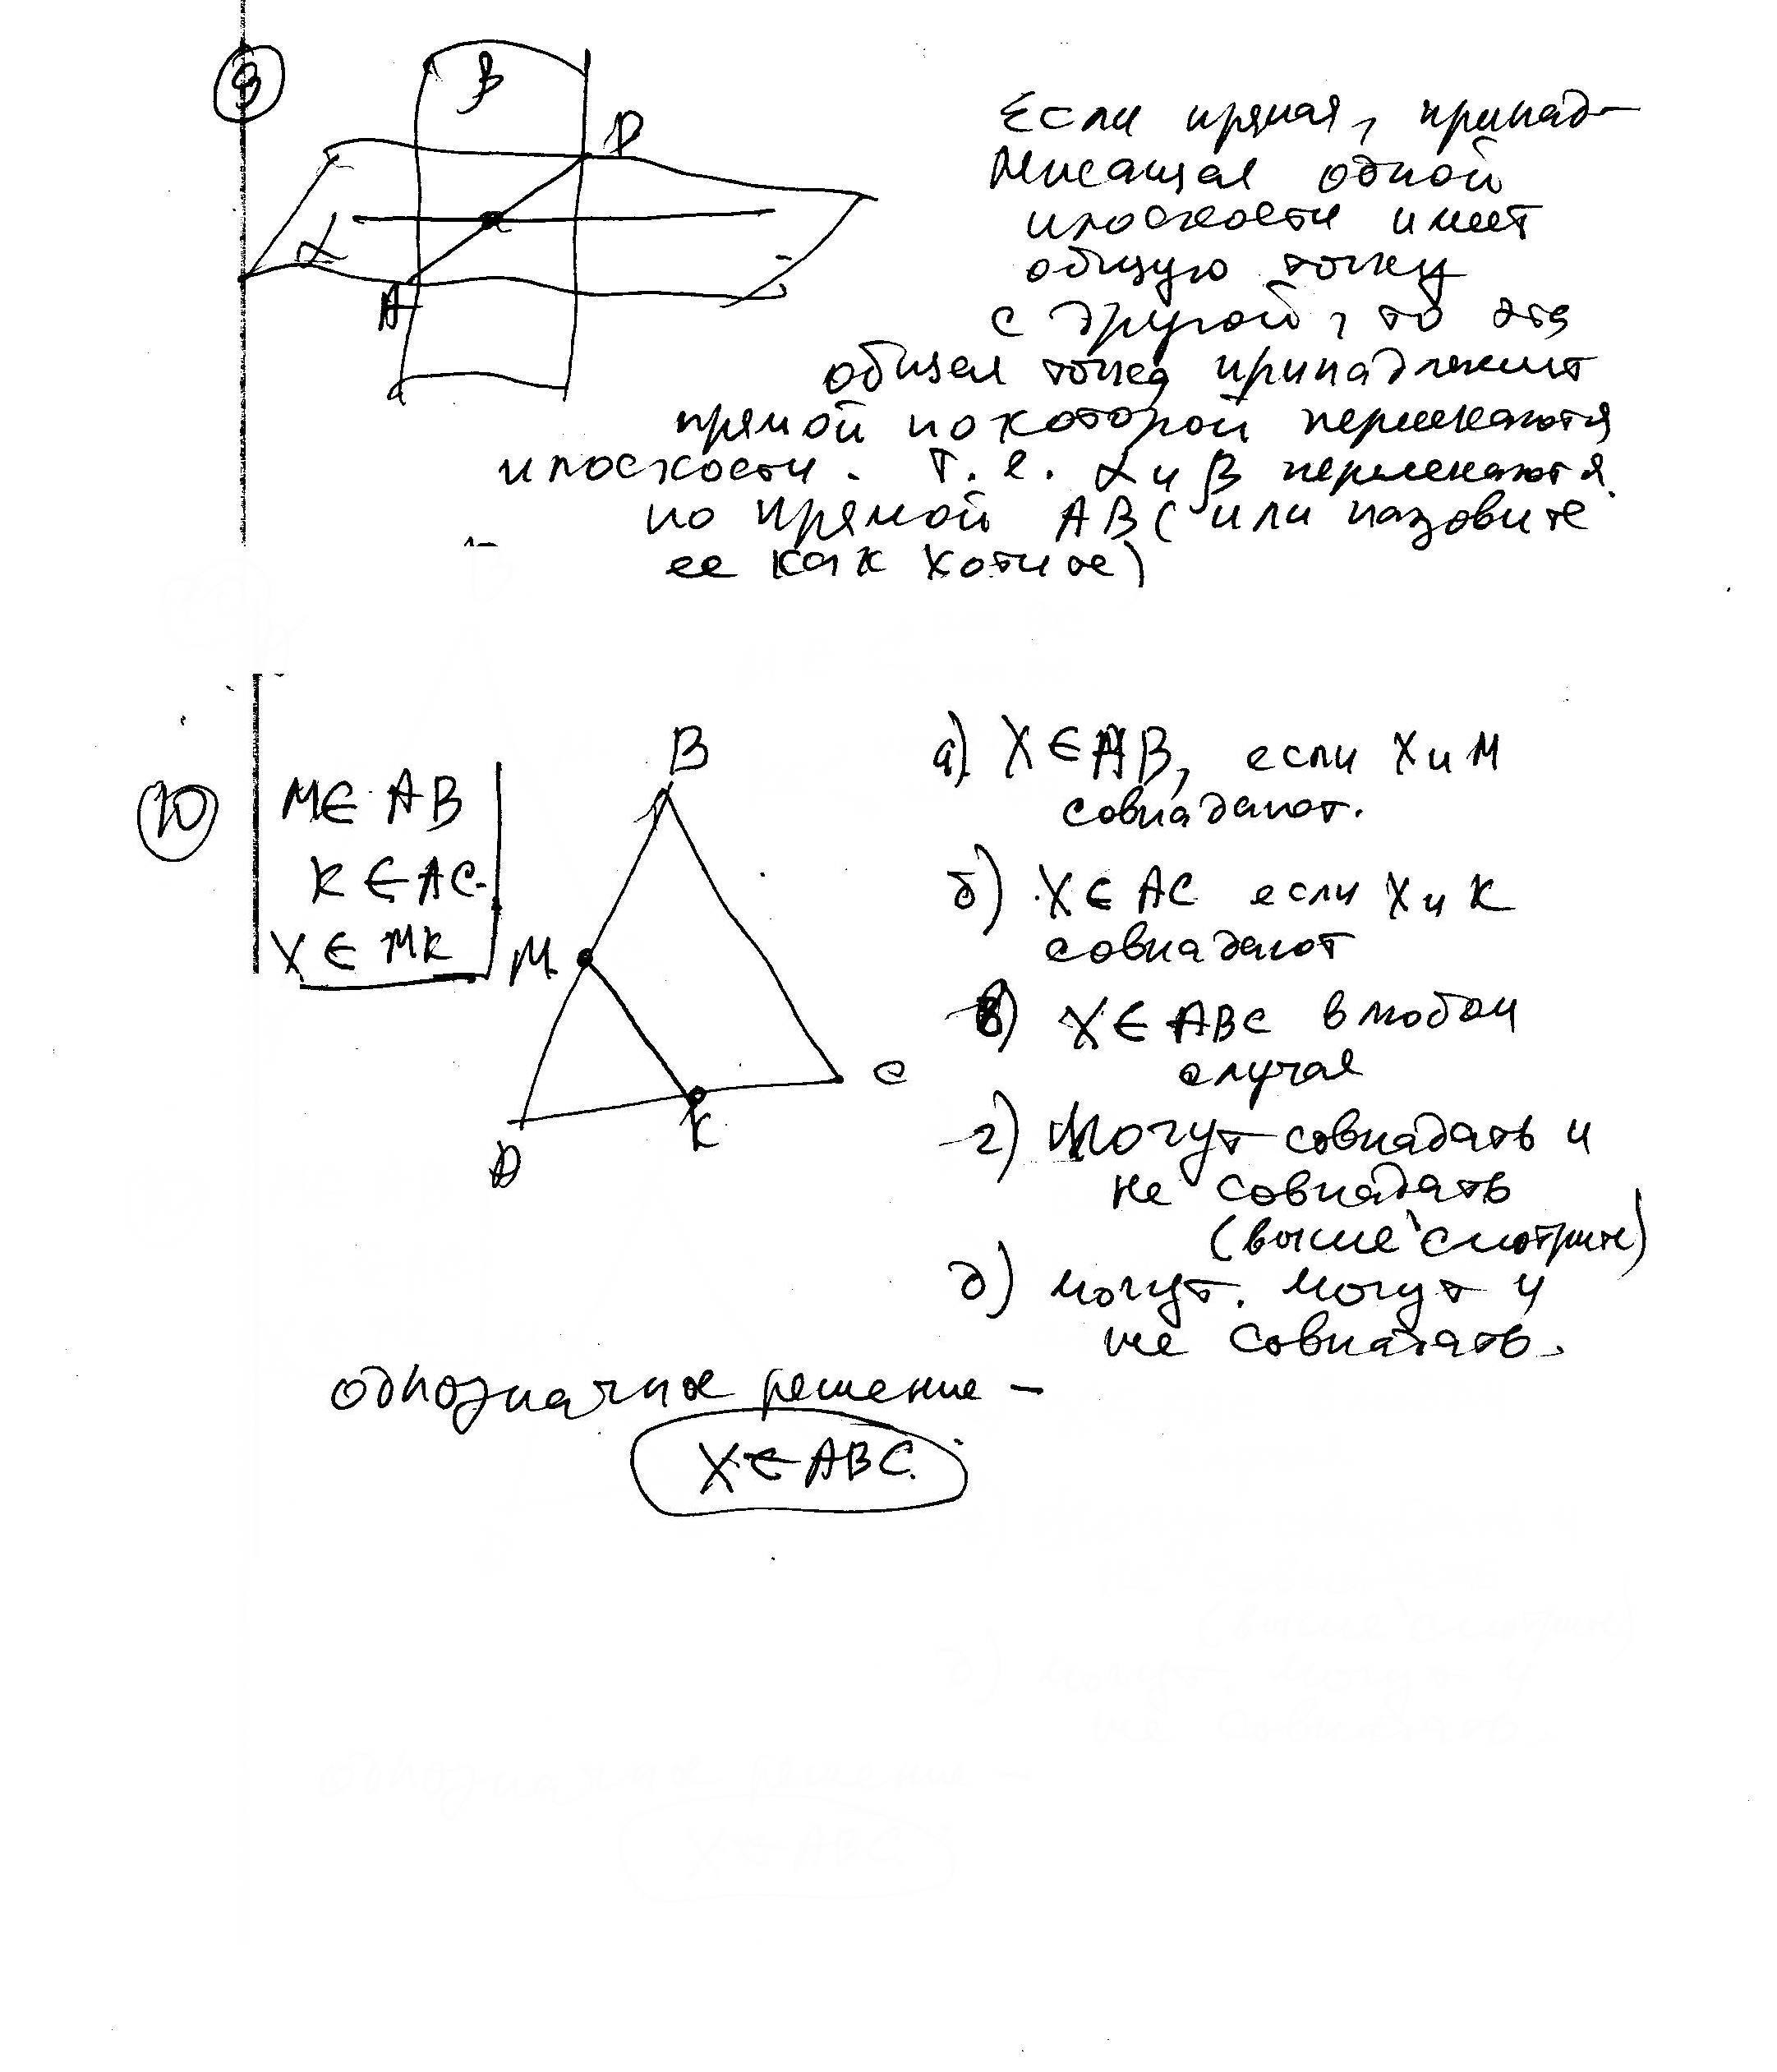 9
β
D
α
A
Если прямая, принад-
лежащая одной
плоскости имеет
общую точку
с другой, то эта
общая точка принадлежит
прямой по которой пересекаются
плоскости. Т.е. α и β пересекаются
по прямой AB (или назовите
ее как хотите)
10
M ∈ AB
K ∈ AC
X ∈ MK
B
M
C
K
а) X ∈ AB, если X и M
совпадают.
б) X ∈ AC если X и K
совпадают
в) X ∈ ABC в любом
случае
г) Могут совпадать и
не совпадать
(выше смотрите)
д) могут. могут и
не совпадать.
однозначное решение –
X ∈ ABC.